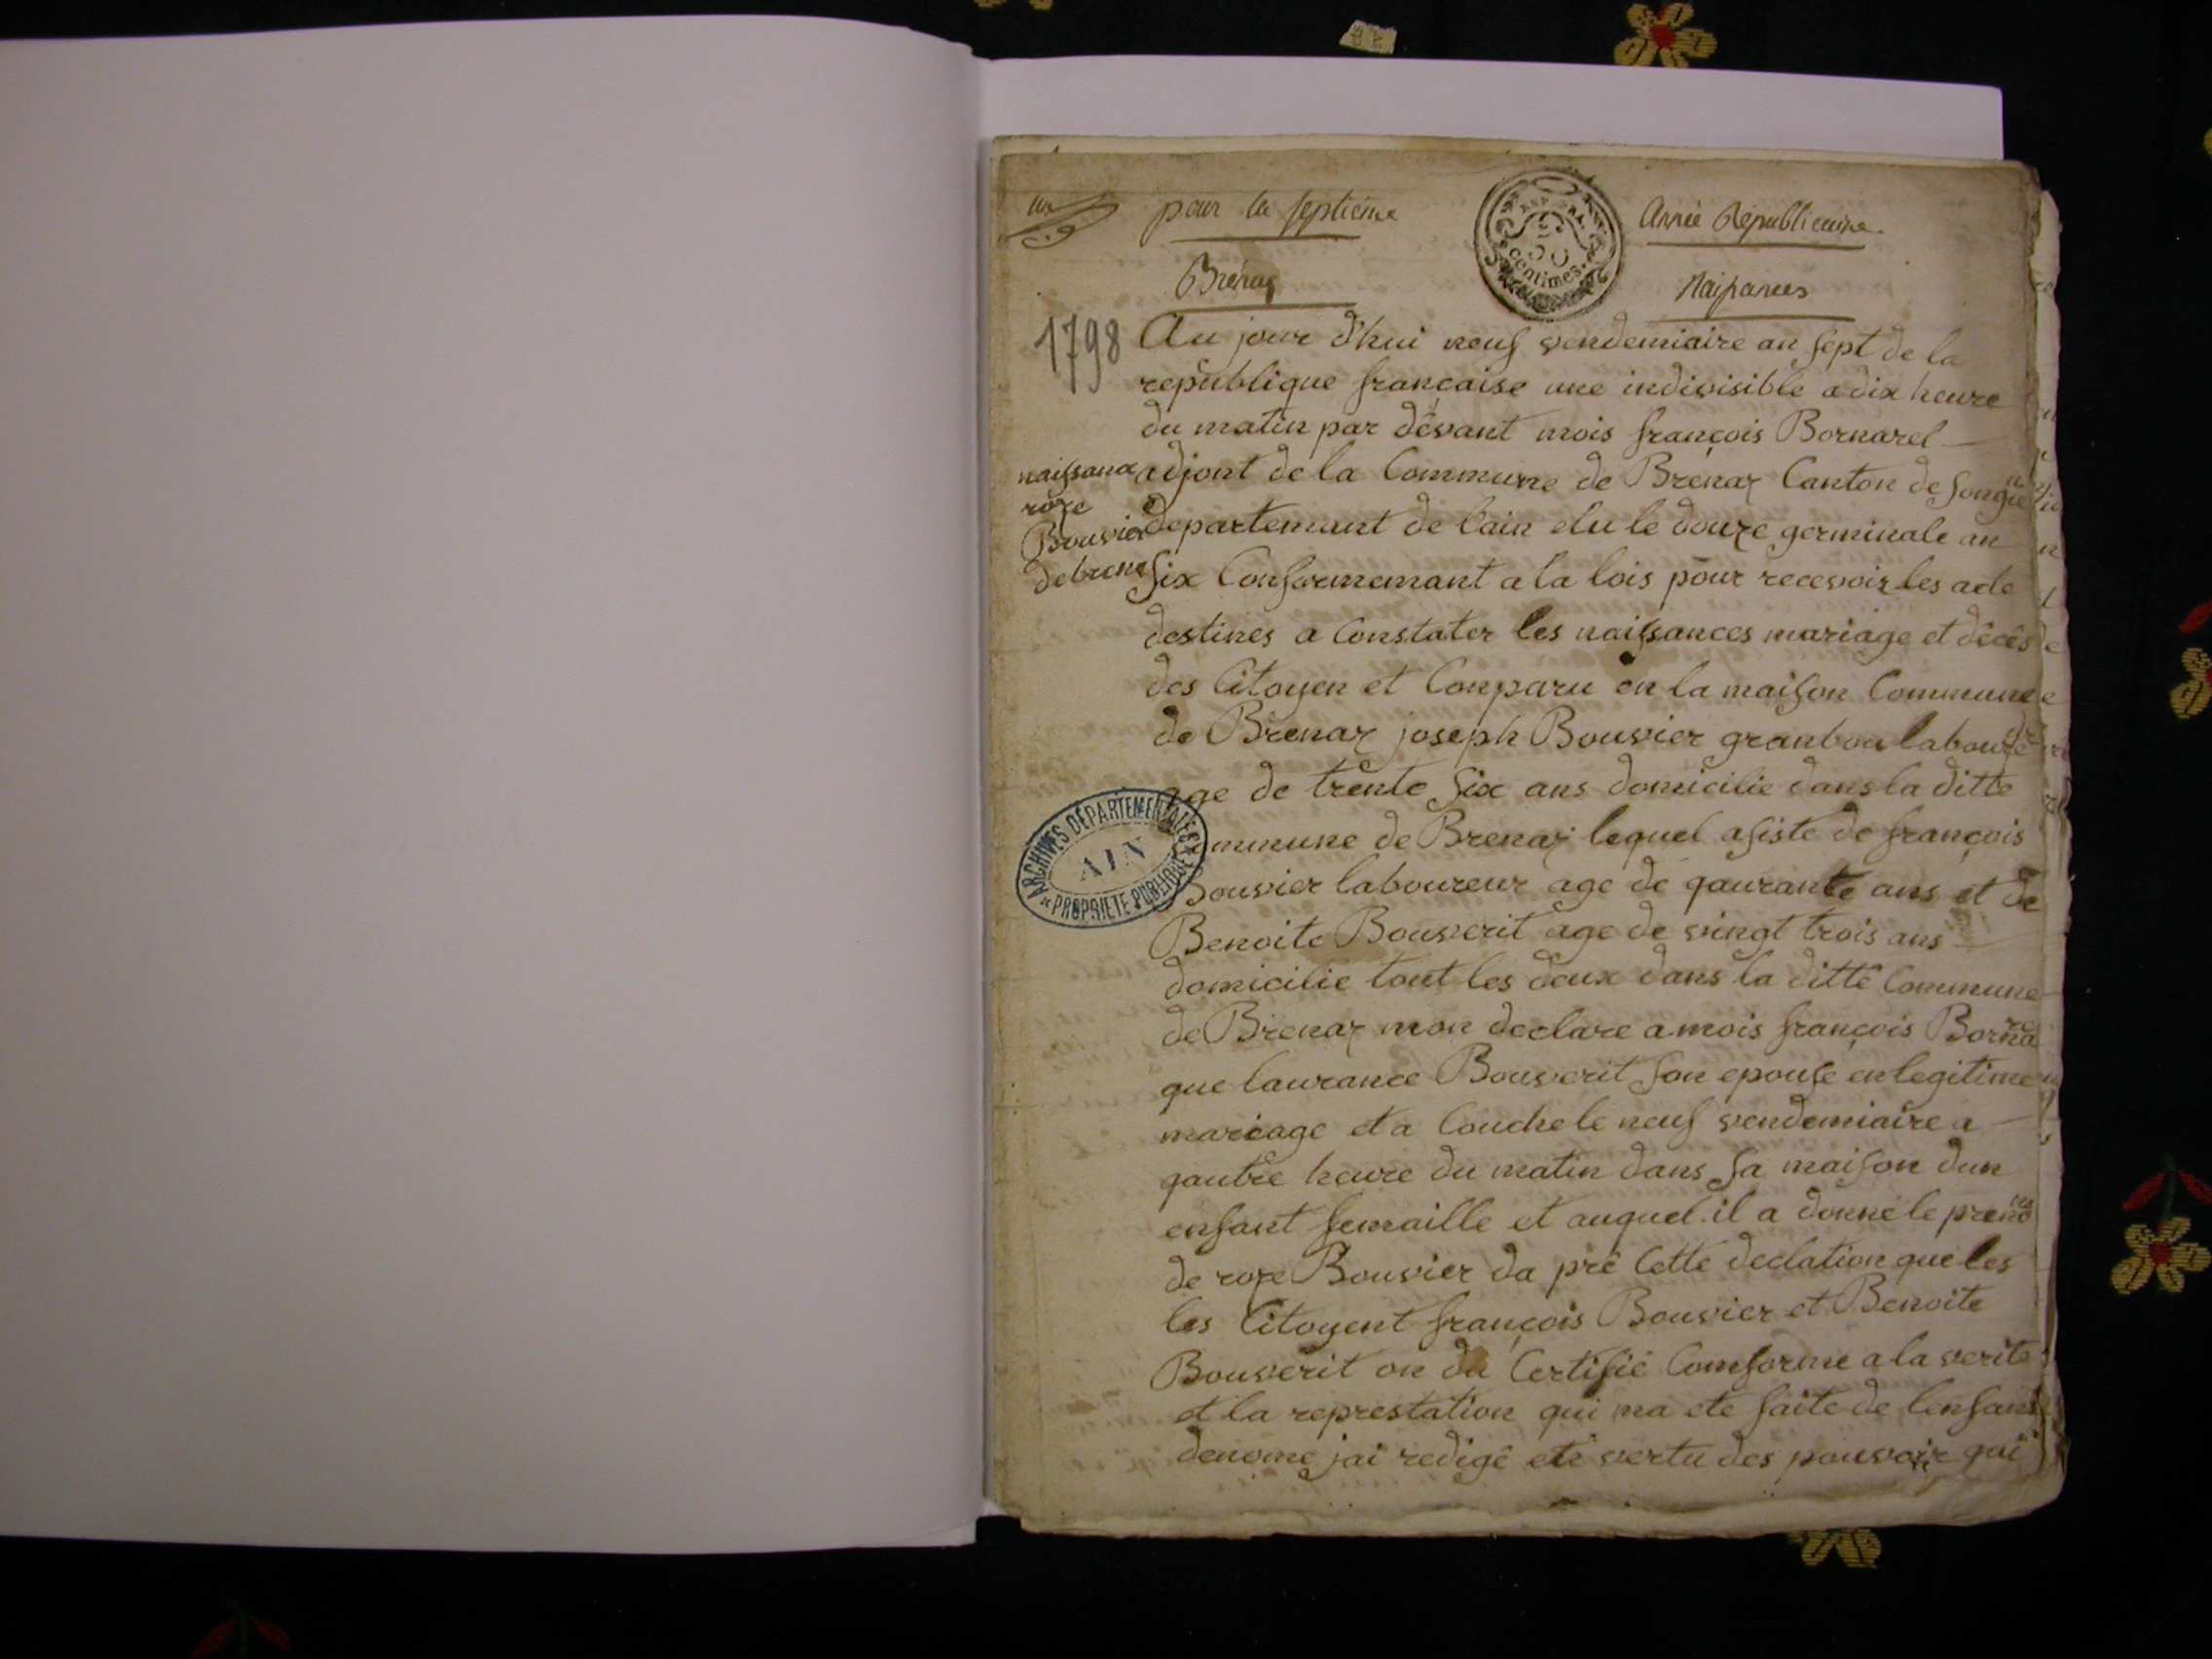 pour la septieme
Année Républicaine
Brénaz
Naissances
50
centimes
1798
Au jour d'hui neuf vendemiaire an sept de la
republique française une indivisible a dix heure
du matin par dévant mois françois Bornarel
adjont de la Commune de Brénaz Canton de songieu
departemant de lain elu le douze germinale an
six Conformemant a la lois pour recevoir les acte
destines a Constater les naissances mariage et décés
des Citoyen et Comparu en la maison Commune
de Brénaz joseph Bouvier granbou laboure
age de trente six ans domicilie dans la ditte
mmune de Brenaz lequel asiste de françois
Bouvier laboureur age de qaurante ans et de
Benoite Bouverit age de vingt trois ans
domicilie tout les deux dans la ditte Commune
de Brenaz mon declare a mois françois Borna
que laurance Bouverit son epouse en legitime
mariage et a Couche le neuf vendemiaire a
qautre heure du matin dans sa maison dun
enfant femaille et auquel il a donné le prenom
de roze Bouvier da pré Cette declation que les
les Citoyent françois Bouvier et Benoite
Bouverit on du Certifié Comforme a la verite
et la represtation qui ma ete faite de lenfant
denome jai redigé en vertu des pouvoir qui
naissance
roze
Bouvier
de brena
ARCHIVES DÉPARTEMENTALES
AIN
PROPRIETE PUBLIQUE